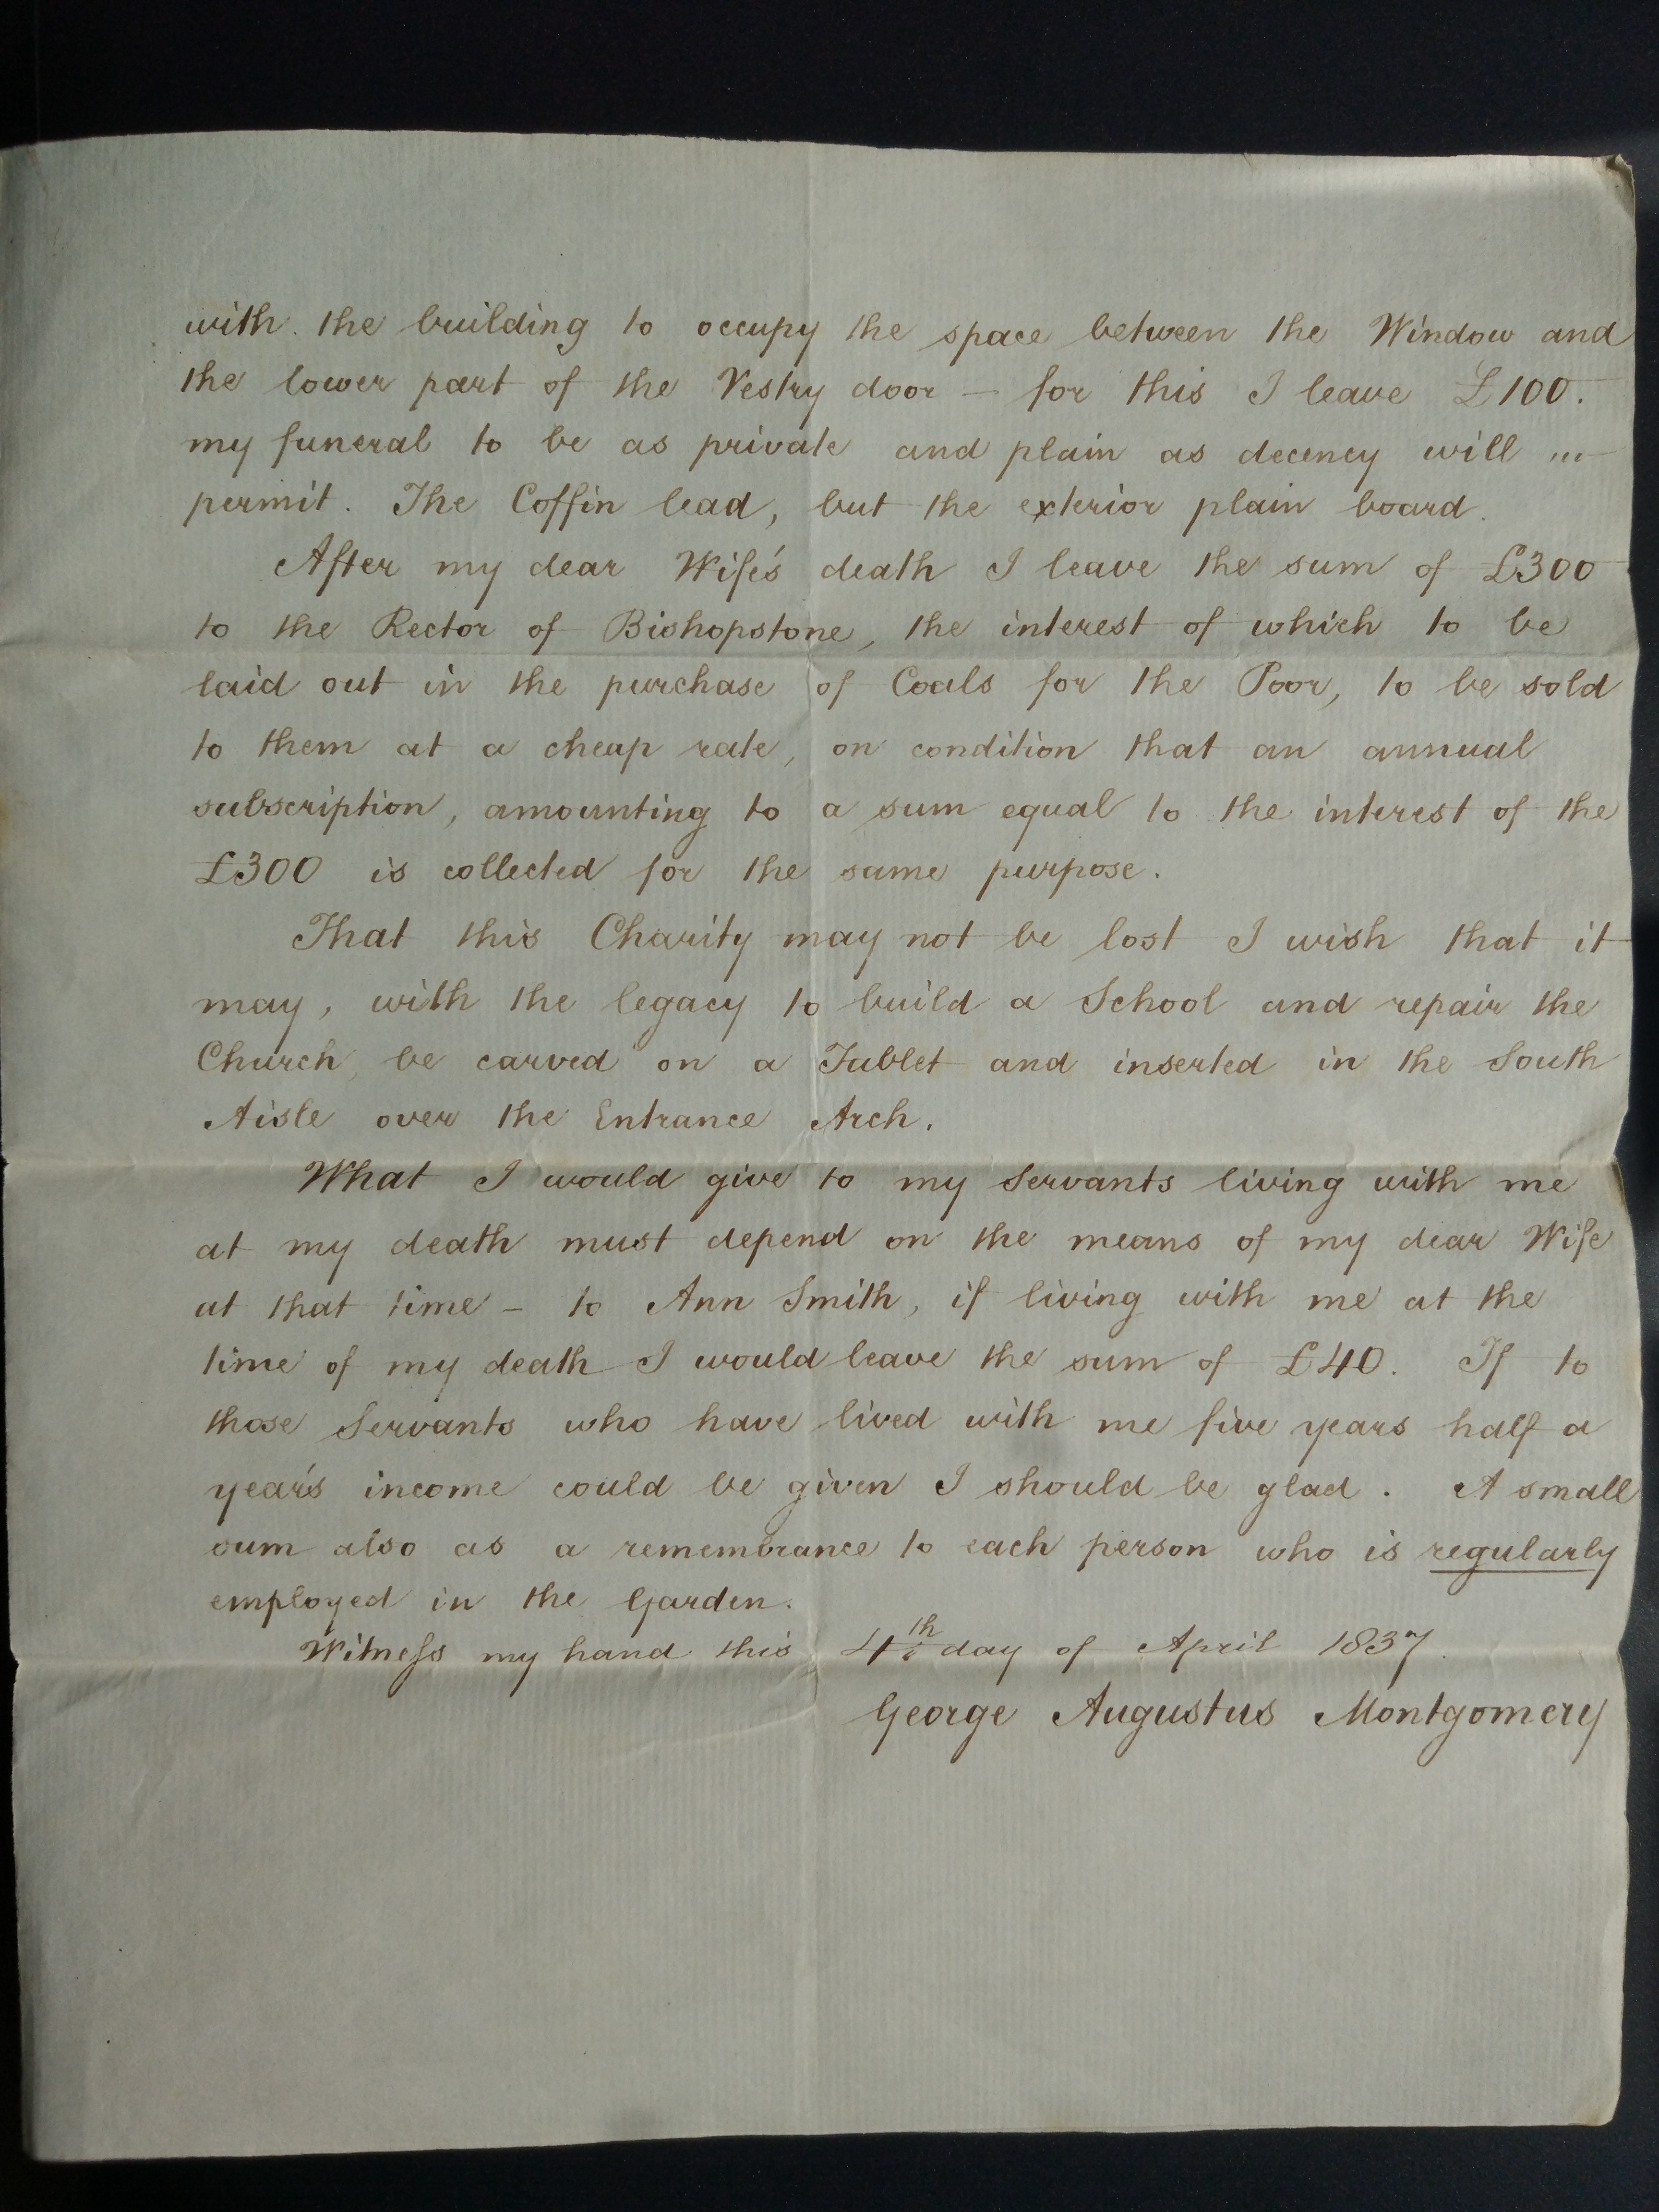 with the building to occupy the space between the Window and
the lower part of the Vestry door – for this I leave £100.
my funeral to be as private and plain as decency will ...
permit. The Coffin lead, but the exterior plain board.
After my dear Wife's death I leave the sum of £300
to the Rector of Bishopstone, the interest of which to be
laid out in the purchase of Coals for the Poor, to be sold
to them at a cheap rate, on condition that an annual
subscription, amounting to a sum equal to the interest of the
£300 is collected for the same purpose.
That this Charity may not be lost I wish that it
may, with the legacy to build a School and repair the
Church, be carved on a Tablet and inserted in the South
Aisle over the Entrance Arch.
What I would give to my Servants living with me
at my death must depend on the means of my dear Wife
at that time – to Ann Smith, if living with me at the
time of my death I would leave the sum of £40. If to
those Servants who have lived with me five years half a
year's income could be given I should be glad. A small
sum also as a remembrance to each person who is regularly
employed in the Garden.
Witness my hand this 4th day of April 1837.
George Augustus Montgomery